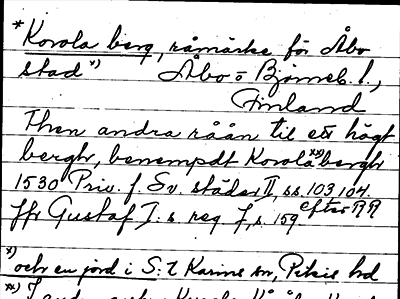 * Korola berg, råmärke för Åbo
stad *) Åbo- o Björneb. l.,
Finland
Then andra råån til ett högt
bergh, benempdt Korola **) bergh
1530 Priv. f. Sv. städer II, ss. 103, 104.
Jfr Gustaf I:s reg 7, s. 159 efter RR
*) och en jord i S:t Karins sn, Pikis hd